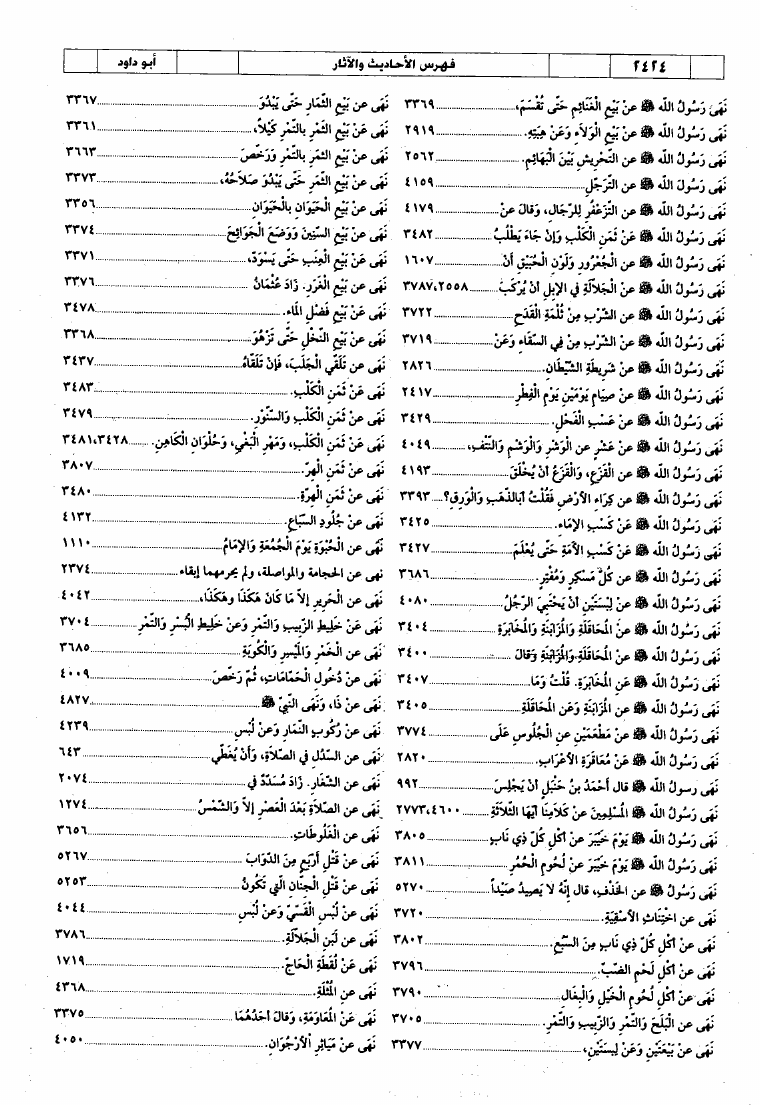 ٢٤٢٤ فهرس الأحاديث والآثار أبو داود
نَهَى رَسُولُ اللّه ﷺ عنْ بَيْعِ الْغَنَائِمِ حَتَّى تُقْسَمَ، ٣٣٦٩
نَهَى رَسُولُ اللّه ﷺ عنْ بَيْعِ الْوَلَاءِ وَعَنْ هِبَتِهِ. ٢٩١٩
نَهَى رَسُولُ اللّه ﷺ عن التَّحْرِيشِ بَيْنَ الْبَهَائِمِ. ٢٥٦٢
نَهَى رَسُولُ اللّه ﷺ عن التَّرَجُّلِ ٤١٥٩
نَهَى رَسُولُ اللّه ﷺ عن التَّزَعْفُرِ لِلرِّجَالِ، وَقالَ عنْ ٤١٧٩
نَهَى رَسُولُ اللّه ﷺ عَنْ ثَمَنِ الْكَلْبِ وَإِنْ جَاءَ يَطْلُبُ ٣٤٨٢
نَهَى رَسُولُ اللّه ﷺ عن الْجُعْرُورِ وَلَوْنِ الْحُبَيْقِ أَنْ ١٦٠٧
نَهَى رَسُولُ اللّه ﷺ عن الْجَلَّالَةِ في الإبِلِ أَنْ يُرْكَبَ ٣٧٨٧،٢٥٥٨
نَهَى رَسُولُ اللّه ﷺ عن الشُّرْبِ مِنْ ثُلْمَةِ الْقَدَحِ ٣٧٢٢
نَهَى رَسُولُ اللّه ﷺ عن الشُّرْبِ مِنْ فِي السِّقَاءِ وَعَنْ ٣٧١٩
نَهَى رَسُولُ اللّه ﷺ عن شَرِيطَةِ الشَّيْطَانِ. ٢٨٢٦
نَهَى رَسُولُ اللّه ﷺ عنْ صِيَامِ يَوْمَيْنِ يَوْمِ الْفِطْرِ ٢٤١٧
نَهَى رَسُولُ اللّه ﷺ عن عَسْبِ الْفَحْلِ. ٣٤٢٩
نَهَى رَسُولُ اللّه ﷺ عنْ عَشْرٍ عن الْوَشْرِ وَالْوَشْمِ وَالنَّتْفِ، ٤٠٤٩
نَهَى رَسُولُ اللّه ﷺ عن الْقَزَعِ، وَالْقَزَعُ أَنْ يُحْلَقَ ٤١٩٣
نَهَى رَسُولُ اللّه ﷺ عن كِرَاءِ الأَرْضِ فَقُلْتُ أَبِالذَّهَبِ وَالْوَرِقِ؟ ٣٣٩٣
نَهَى رَسُولُ اللّه ﷺ عَنْ كَسْبِ الإمَاءِ. ٣٤٢٥
نَهَى رَسُولُ اللّه ﷺ عَنْ كَسْبِ الأَمَةِ حَتَّى يُعْلَمَ ٣٤٢٧
نَهَى رَسُولُ اللّه ﷺ عن كُلِّ مُسْكِرٍ وَمُفْتِرٍ. ٣٦٨٦
نَهَى رَسُولُ اللّه ﷺ عن لِبْسَتَيْنِ أَنْ يَحْتَبِيَ الرَّجُلُ ٤٠٨٠
نَهَى رَسُولُ اللّه ﷺ عنْ المُحَاقَلَةِ وَالمُزَابَنَةِ وَالمُخَابَرَةِ ٣٤٠٤
نَهَى رَسُولُ اللّه ﷺ عن المُحَاقَلَةِ وَالمُزَابَنَةِ وَقالَ ٣٤٠٠
نَهَى رَسُولُ اللّه ﷺ عَنِ المُخَابَرَةِ. قُلْتُ وَمَا ٣٤٠٧
نَهَى رَسُولُ اللّه ﷺ عن المُزَابَنَةِ وَعَنِ المُحَاقَلَةِ ٣٤٠٥
نَهَى رَسُولُ اللّه ﷺ عنْ مَطْعَمَيْنِ عنِ الْجُلُوسِ عَلَى ٣٧٧٤
نَهَى رَسُولُ اللّه ﷺ عَنْ مُعَاقَرَةِ الأَعْرَابِ. ٢٨٢٠
نَهَى رسول اللّه ﷺ قال أَحْمَدُ بنُ حَنْبَلٍ أَنْ يَجْلِسَ ٩٩٢
نَهَى رَسُولُ اللّه ﷺ الْمُسْلِمِينَ عنْ كَلَامِنَا أَيُّهَا الثَّلَاثَةِ ٢٧٧٣،٤٦٠٠
نَهَى رَسُولُ اللّه ﷺ يَوْمَ خَيْبَرَ عنْ أَكْلِ كُلِّ ذِي نَابٍ ٣٨٠٥
نَهَى رَسُولُ اللّه ﷺ يَوْمَ خَيْبَرَ عنْ لُحُومِ الْحُمُرِ ٣٨١١
نَهَى رَسُولُ ﷺ عن الْخَذْفِ، قال إنَّهُ لَا يَصِيدُ صَيْداً ٥٢٧٠
نَهَى عن اخْتِنَاثِ الأَسْقِيَةِ. ٣٧٢٠
نَهَى عنْ أَكْلِ كُلِّ ذِي نَابٍ مِنَ السَّبُعِ. ٣٨٠٢
نَهَى عنْ أَكْلِ لَحْمِ الضَّبِّ. ٣٧٩٦
نَهَى عنْ أَكْلِ لُحُومِ الْخَيْلِ وَالْبِغَالِ ٣٧٩٠
نَهَى عن الْبَلَحِ وَالتَّمْرِ وَالزَّبِيبِ وَالتَّمْرِ. ٣٧٠٥
نَهَى عنْ بَيْعَتَيْنِ وَعَنْ لِبسَتَيْنِ، ٣٣٧٧
نَهَى عن بَيْعِ الثِّمَارِ حَتَّى يَبْدُوَ ٣٣٦٧
نَهَى عَنْ بَيْعِ الثَّمْرِ بالتَّمْرِ كَيْلاً، ٣٣٦١
نَهَى عن بَيْعِ الثَّمَرِ بالتَّمْرِ وَرَخَّصَ ٣٦٦٣
نَهَى عن بَيْعِ الثَّمَرِ حَتَّى يَبْدُوَ صَلَاحُهُ، ٣٣٧٣
نَهَى عن بَيْعِ الْحَيَوَانِ بالْحَيَوَانِ ٣٣٥٦
نَهَى عن بَيْعِ السِّنِينَ وَوَضَعَ الْجَوَائِحَ ٣٣٧٤
نَهَى عَنْ بَيْعِ الْعِنَبِ حَتَّى يَسْوَدَّ، ٣٣٧١
نَهَى عن بَيْعِ الْغَرَرِ. زَادَ عُثْمَانُ ٣٣٧٦
نَهَى عَنْ بَيْعِ فَضْلِ المَاءِ. ٣٤٧٨
نَهَى عَنْ بَيْعِ النَّخْلِ حَتَّى تَزْهُوَ ٣٣٦٨
نَهَى عن تَلَقِّي الْجَلَبَ، فَإِنْ تَلَقَّاهُ ٣٤٣٧
نَهَى عَنْ ثَمَنِ الْكَلْبِ. ٣٤٨٣
نَهَى عَنْ ثَمَنِ الْكَلْبِ وَالسِّنَّوْرِ. ٣٤٧٩
نَهَى عَنْ ثَمَنِ الْكَلْبِ، وَمَهْرِ الْبَغِيِّ، وَحُلْوَانِ الْكَاهِنِ. ٣٤٨١،٣٤٢٨
نَهَى عنْ ثَمَنِ الْهِرِّ. ٣٨٠٧
نَهَى عنْ ثَمَنِ الْهِرَّةِ. ٣٤٨٠
نَهَى عن جُلُودِ السِّبَاعِ. ٤١٣٢
نَهَى عن الْحُبْوَةِ يَوْمَ الْجُمُعَةِ وَالإمَامُ ١١١٠
نهى عن الحجامة والمواصلة، ولم يحرمهما إبقاء ٢٣٧٤
نَهَى عن الْحَرِيرِ إلاَّ مَا كَانَ هَكَذَا وهَكَذَا، ٤٠٤٢
نَهَى عَنْ خَلِيطِ الزَّبِيبِ وَالتَّمْرِ وَعنْ خَلِيطِ الْبُسْرِ وَالتَّمْرِ ٣٧٠٤
نَهَى عن الْخَمْرِ وَالمَيْسِرِ وَالْكُوبَةِ ٣٦٨٥
نَهَى عنْ دُخُولِ الْحَمَّامَاتِ، ثُمَّ رَخَّصَ ٤٠٠٩
نَهَى عن ذَا، وَنَهَى النَّبِيُّ ﷺ ٤٨٢٧
نَهَى عنْ رُكُوبِ النِّمَارِ وَعنْ لُبْسِ ٤٢٣٩
نَهَى عن السَّدْلِ في الصَّلَاةِ، وَأَنْ يُغَطِّيَ ٦٤٣
نَهَى عن الشِّغَارِ. زَادَ مُسَدَّدٌ في ٢٠٧٤
نَهَى عن الصَّلَاةِ بَعْدَ الْعَصْرِ إلاَّ وَالشَّمْسُ ١٢٧٤
نَهَى عن الْغَلُوطَاتِ. ٣٦٥٦
نَهَى عن قَتْلِ أَرْبَعٍ مِنَ الدَّوَابِّ ٥٢٦٧
نَهَى عن قَتْلِ الْجِنَّانِ الَّتي تَكُونُ ٥٢٥٣
نَهَى عن لُبْسِ الْقَسِّيِّ وَعنْ لُبْسِ ٤٠٤٤
نَهَى عن لَبَنِ الْجَلَّالَةِ. ٣٧٨٦
نَهَى عَنْ لُقَطَةِ الْحَاجِّ. ١٧١٩
نَهَى عن المُثْلَةِ. ٤٣٦٨
نَهَى عَنْ المُعَاوَمَةِ، وَقالَ أَحَدُهُمَا ٣٣٧٥
نَهَى عنْ مَيَاثِرِ الأَرْجُوَانِ. ٤٠٥٠